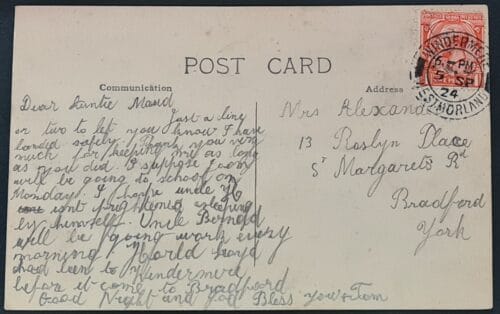 POST CARD
Communication
Address
WINDERMERE
6 PM
5 SP
24
WESTMORLAND
Dear Auntie Maud
Just a line
or two to let you know I have
landed safely. Thank you very
much for keeping me as long
as you did. I suppose Tom
will be going to school on
Monday. I hope uncle
isnt frightened sleeping
by himself. Uncle
will be going work every
morning.
had been to Windermere
before it come to Bradford
Good Night and God Bless you + Tom
Mrs Alexander
13 Roslyn Place
St Margarets Rd
Bradford
York